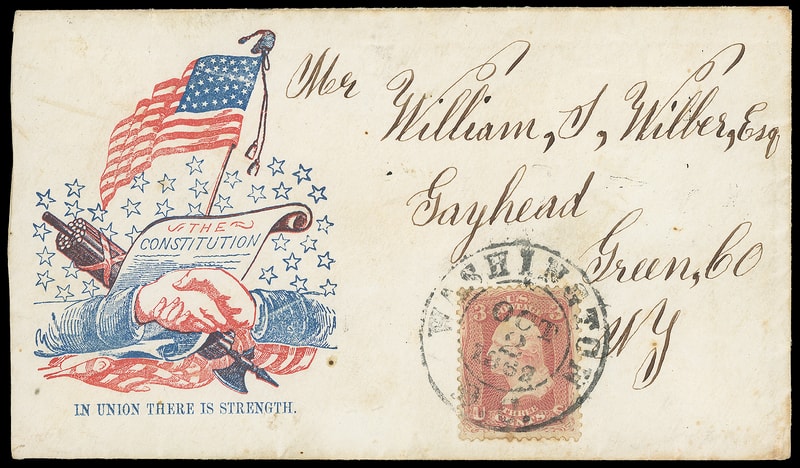 Mr
William, S, Wilber, Esq
Gayhead
Green, CO
NY
THE
CONSTITUTION
IN UNION THERE IS STRENGTH.
WASHINGTON
OCT
2
1862
U.S.
3 3
THREE
CENTS